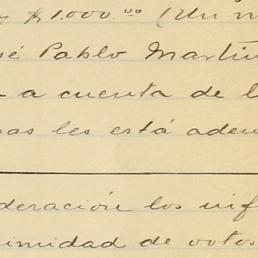 y $1.000.00 (Un m
sé Pablo Martin
a cuenta de l
as les está adeu
deración los inf
nimidad de votos